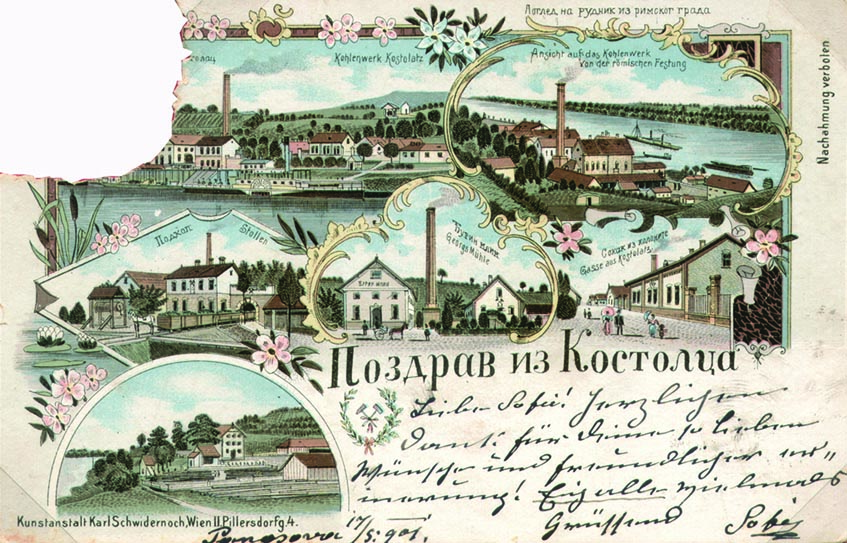 Поглед на рудник из римског града
Kohlenwerk Kostolatz
Ansicht auf das Kohlenwerk
von der römischen Festung
Nachahmung verboten
Поткоп Stollen
Georgs Mühle
Сокак из колоните
Gasse aus Kostolatz
Поздрав из Костолца
Liebe Sofie! Herzlichen
Dank für Deine so lieben
Wünsche und freundlicher er-
innerung! Euch alle vielmals
Grüssend
Kunstanstalt Karl Schwidernoch, Wien II. Pillersdorfg. 4.
Pancsova 17/5. 901.